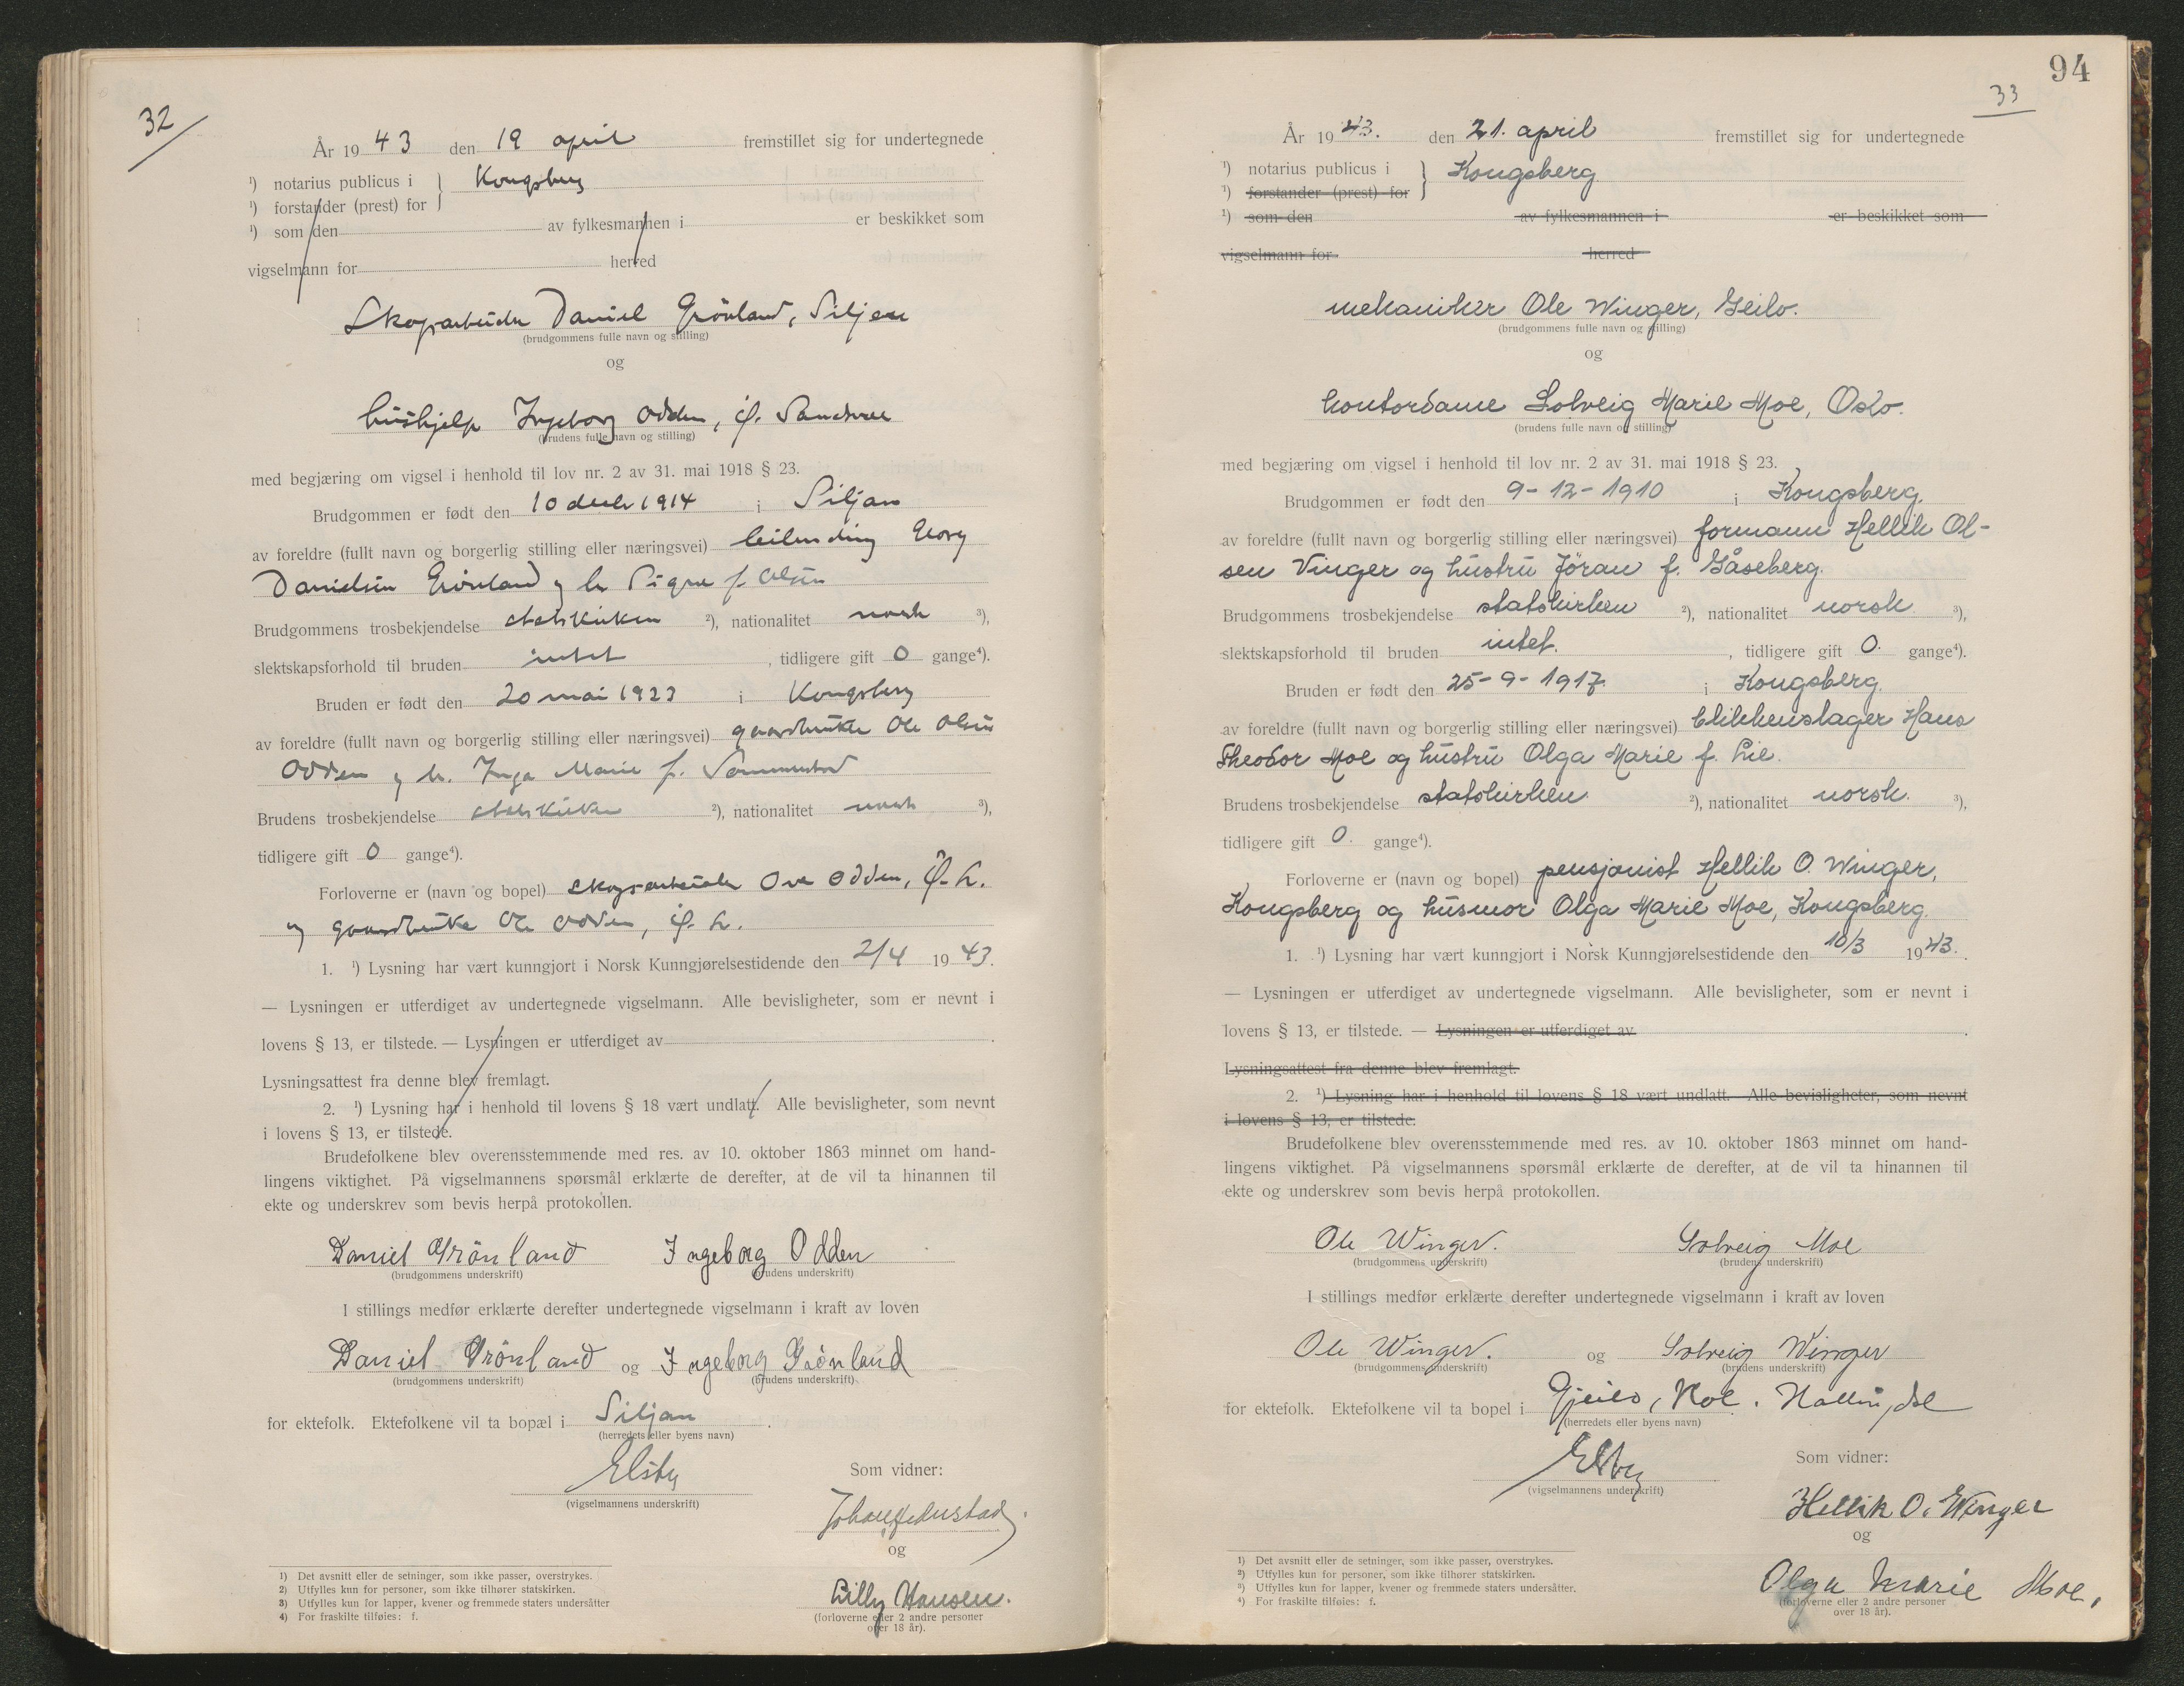 32
År 19 43 den 19 april fremstillet sig for undertegnede
¹) notarius publicus i } Kongsberg
¹) forstander (prest) for
¹) som den av fylkesmannen i er beskikket som
vigselmann for herred
Skogsarbeider Daniel Grönland, Siljan
(brudgommens fulle navn og stilling)
og
hushjelp Ingeborg Odden, Ø. Sandsvær
(brudens fulle navn og stilling)
med begjæring om vigsel i henhold til lov nr. 2 av 31. mai 1918 § 23.
Brudgommen er født den 10 decbr 1914 i Siljan
av foreldre (fullt navn og borgerlig stilling eller næringsvei) leilending Georg
Danielsen Grönland og h. Signe f. Olsen
Brudgommens trosbekjendelse statskirken ²), nationalitet norsk ³),
slektskapsforhold til bruden intet , tidligere gift 0 gange⁴).
Bruden er født den 20 mai 1923 i Kongsberg
av foreldre (fullt navn og borgerlig stilling eller næringsvei) gaardbruker Ole Olsen
Odden og h. Inga Marie f.
Brudens trosbekjendelse statskirken ²), nationalitet norsk ³),
tidligere gift 0 gange⁴).
Forloverne er (navn og bopel) skogsarbeider Odden, Ø. S.
og gaardbruker Ole Odden, Ø. S.
1. ¹) Lysning har vært kunngjort i Norsk Kunngjørelsestidende den 2/4 19 43.
— Lysningen er utferdiget av undertegnede vigselmann. Alle bevisligheter, som er nevnt i
lovens § 13, er tilstede. — Lysningen er utferdiget av .
Lysningsattest fra denne blev fremlagt.
2. ¹) Lysning har i henhold til lovens § 18 vært undlatt. Alle bevisligheter, som nevnt
i lovens § 13, er tilstede.
Brudefolkene blev overensstemmende med res. av 10. oktober 1863 minnet om hand-
lingens viktighet. På vigselmannens spørsmål erklærte de derefter, at de vil ta hinannen til
ekte og underskrev som bevis herpå protokollen.
Daniel Grönland Ingeborg Odden
(brudgommens underskrift) (brudens underskrift)
I stillings medfør erklærte derefter undertegnede vigselmann i kraft av loven
Daniel Grönland og Ingeborg Grönland
(brudgommens underskrift) (brudens underskrift)
for ektefolk. Ektefolkene vil ta bopæl i Siljan .
(herredets eller byens navn)
(vigselmannens underskrift)
Som vidner:
og
Lilly Hansen.
(forloverne eller 2 andre personer
over 18 år).
1) Det avsnitt eller de setninger, som ikke passer, overstrykes.
2) Utfylles kun for personer, som ikke tilhører statskirken.
3) Utfylles kun for lapper, kvener og fremmede staters undersåtter
4) For fraskilte tilføies: f.
94
33
År 19 43. den 21. april fremstillet sig for undertegnede
¹) notarius publicus i } Kongsberg.
¹) forstander (prest) for
¹) som den av fylkesmannen i er beskikket som
vigselmann for herred
mekaniker Ole Winger, Geilo.
(brudgommens fulle navn og stilling)
og
kontordame Solveig Marie Moe, Oslo.
(brudens fulle navn og stilling)
med begjæring om vigsel i henhold til lov nr. 2 av 31. mai 1918 § 23.
Brudgommen er født den 9-12-1910 i Kongsberg.
av foreldre (fullt navn og borgerlig stilling eller næringsvei) formann Hellik Ol-
sen Vinger og hustru Jöran f. Gåseberg.
Brudgommens trosbekjendelse statskirken ²), nationalitet norsk ³),
slektskapsforhold til bruden intet. , tidligere gift 0. gange⁴).
Bruden er født den 25-9-1917. i Kongsberg.
av foreldre (fullt navn og borgerlig stilling eller næringsvei) blikkenslager Hans
Theodor Moe og hustru Olga Marie f. Lie.
Brudens trosbekjendelse statskirken ²), nationalitet norsk. ³),
tidligere gift 0. gange⁴).
Forloverne er (navn og bopel) pensjonist Hellik O. Winger,
Kongsberg og husmor Olga Marie Moe, Kongsberg.
1. ¹) Lysning har vært kunngjort i Norsk Kunngjørelsestidende den 10/3 19 43.
— Lysningen er utferdiget av undertegnede vigselmann. Alle bevisligheter, som er nevnt i
lovens § 13, er tilstede. — Lysningen er utferdiget av .
Lysningsattest fra denne blev fremlagt.
2. ¹) Lysning har i henhold til lovens § 18 vært undlatt. Alle bevisligheter, som nevnt
i lovens § 13, er tilstede.
Brudefolkene blev overensstemmende med res. av 10. oktober 1863 minnet om hand-
lingens viktighet. På vigselmannens spørsmål erklærte de derefter, at de vil ta hinannen til
ekte og underskrev som bevis herpå protokollen.
Ole Winger. Solveig Moe
(brudgommens underskrift) (brudens underskrift)
I stillings medfør erklærte derefter undertegnede vigselmann i kraft av loven
Ole Winger. og Solveig Winger
(brudgommens underskrift) (brudens underskrift)
for ektefolk. Ektefolkene vil ta bopel i Gjeilo, Hol. Hallingdal
(herredets eller byens navn)
(vigselmannens underskrift)
Som vidner:
Hellik O. Winger
og
Olga Marie Moe.
(forloverne eller 2 andre personer
over 18 år).
1) Det avsnitt eller de setninger, som ikke passer, overstrykes.
2) Utfylles kun for personer, som ikke tilhører statskirken.
3) Utfylles kun for lapper, kvener og fremmede staters undersåtter.
4) For fraskilte tilføies: f.